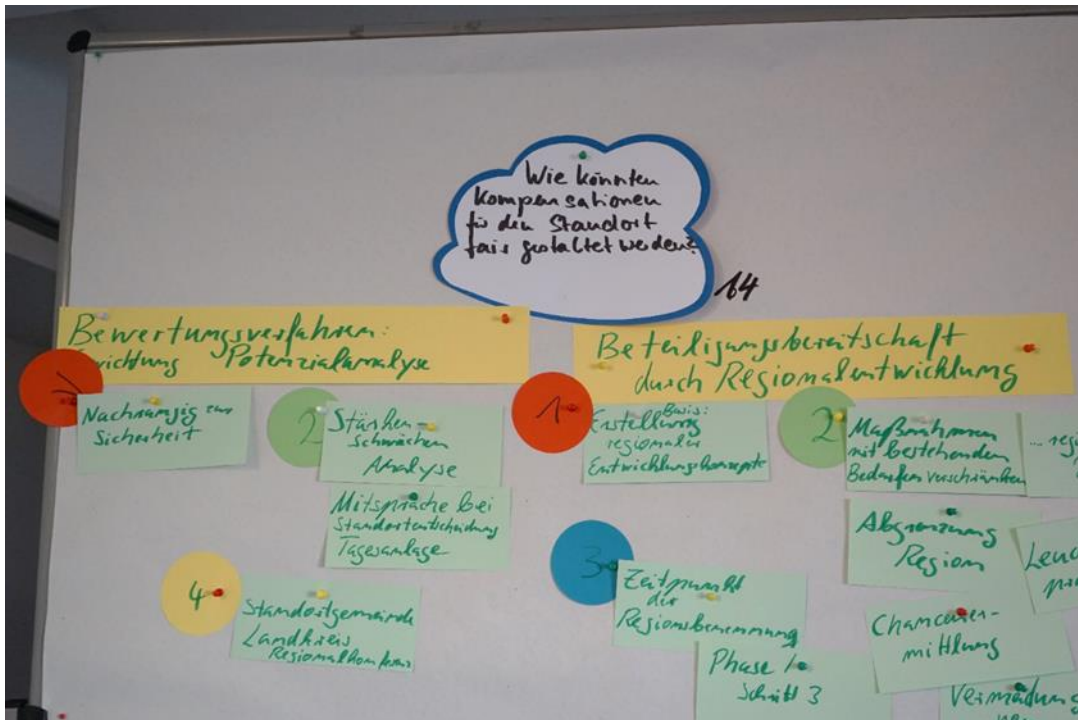 Wie könnten
Kompensationen
für den Standort
fair gestaltet werden?
14
Bewertungsverfahren:
Potenzialanalyse
Nachrangig zur
Sicherheit
2
Stärken
Schwächen
Analyse
Mitsprache bei
Standortentscheidung
Tagesanlage
4
Standortgemeinde
Landkreis
Regionalkonferenz
Beteiligungsbereitschaft
durch Regionalentwicklung
1
Basis:
Erstellung
regionaler
Entwicklungskonzepte
2
Maßnahmen
mit bestehenden
Bedarfen verschränken
Abgrenzung
Region
Chancener-
mittlung
3
Zeitpunkt
der
Regionsbenennung
Phase 1
Schritt 3
Vermeidung